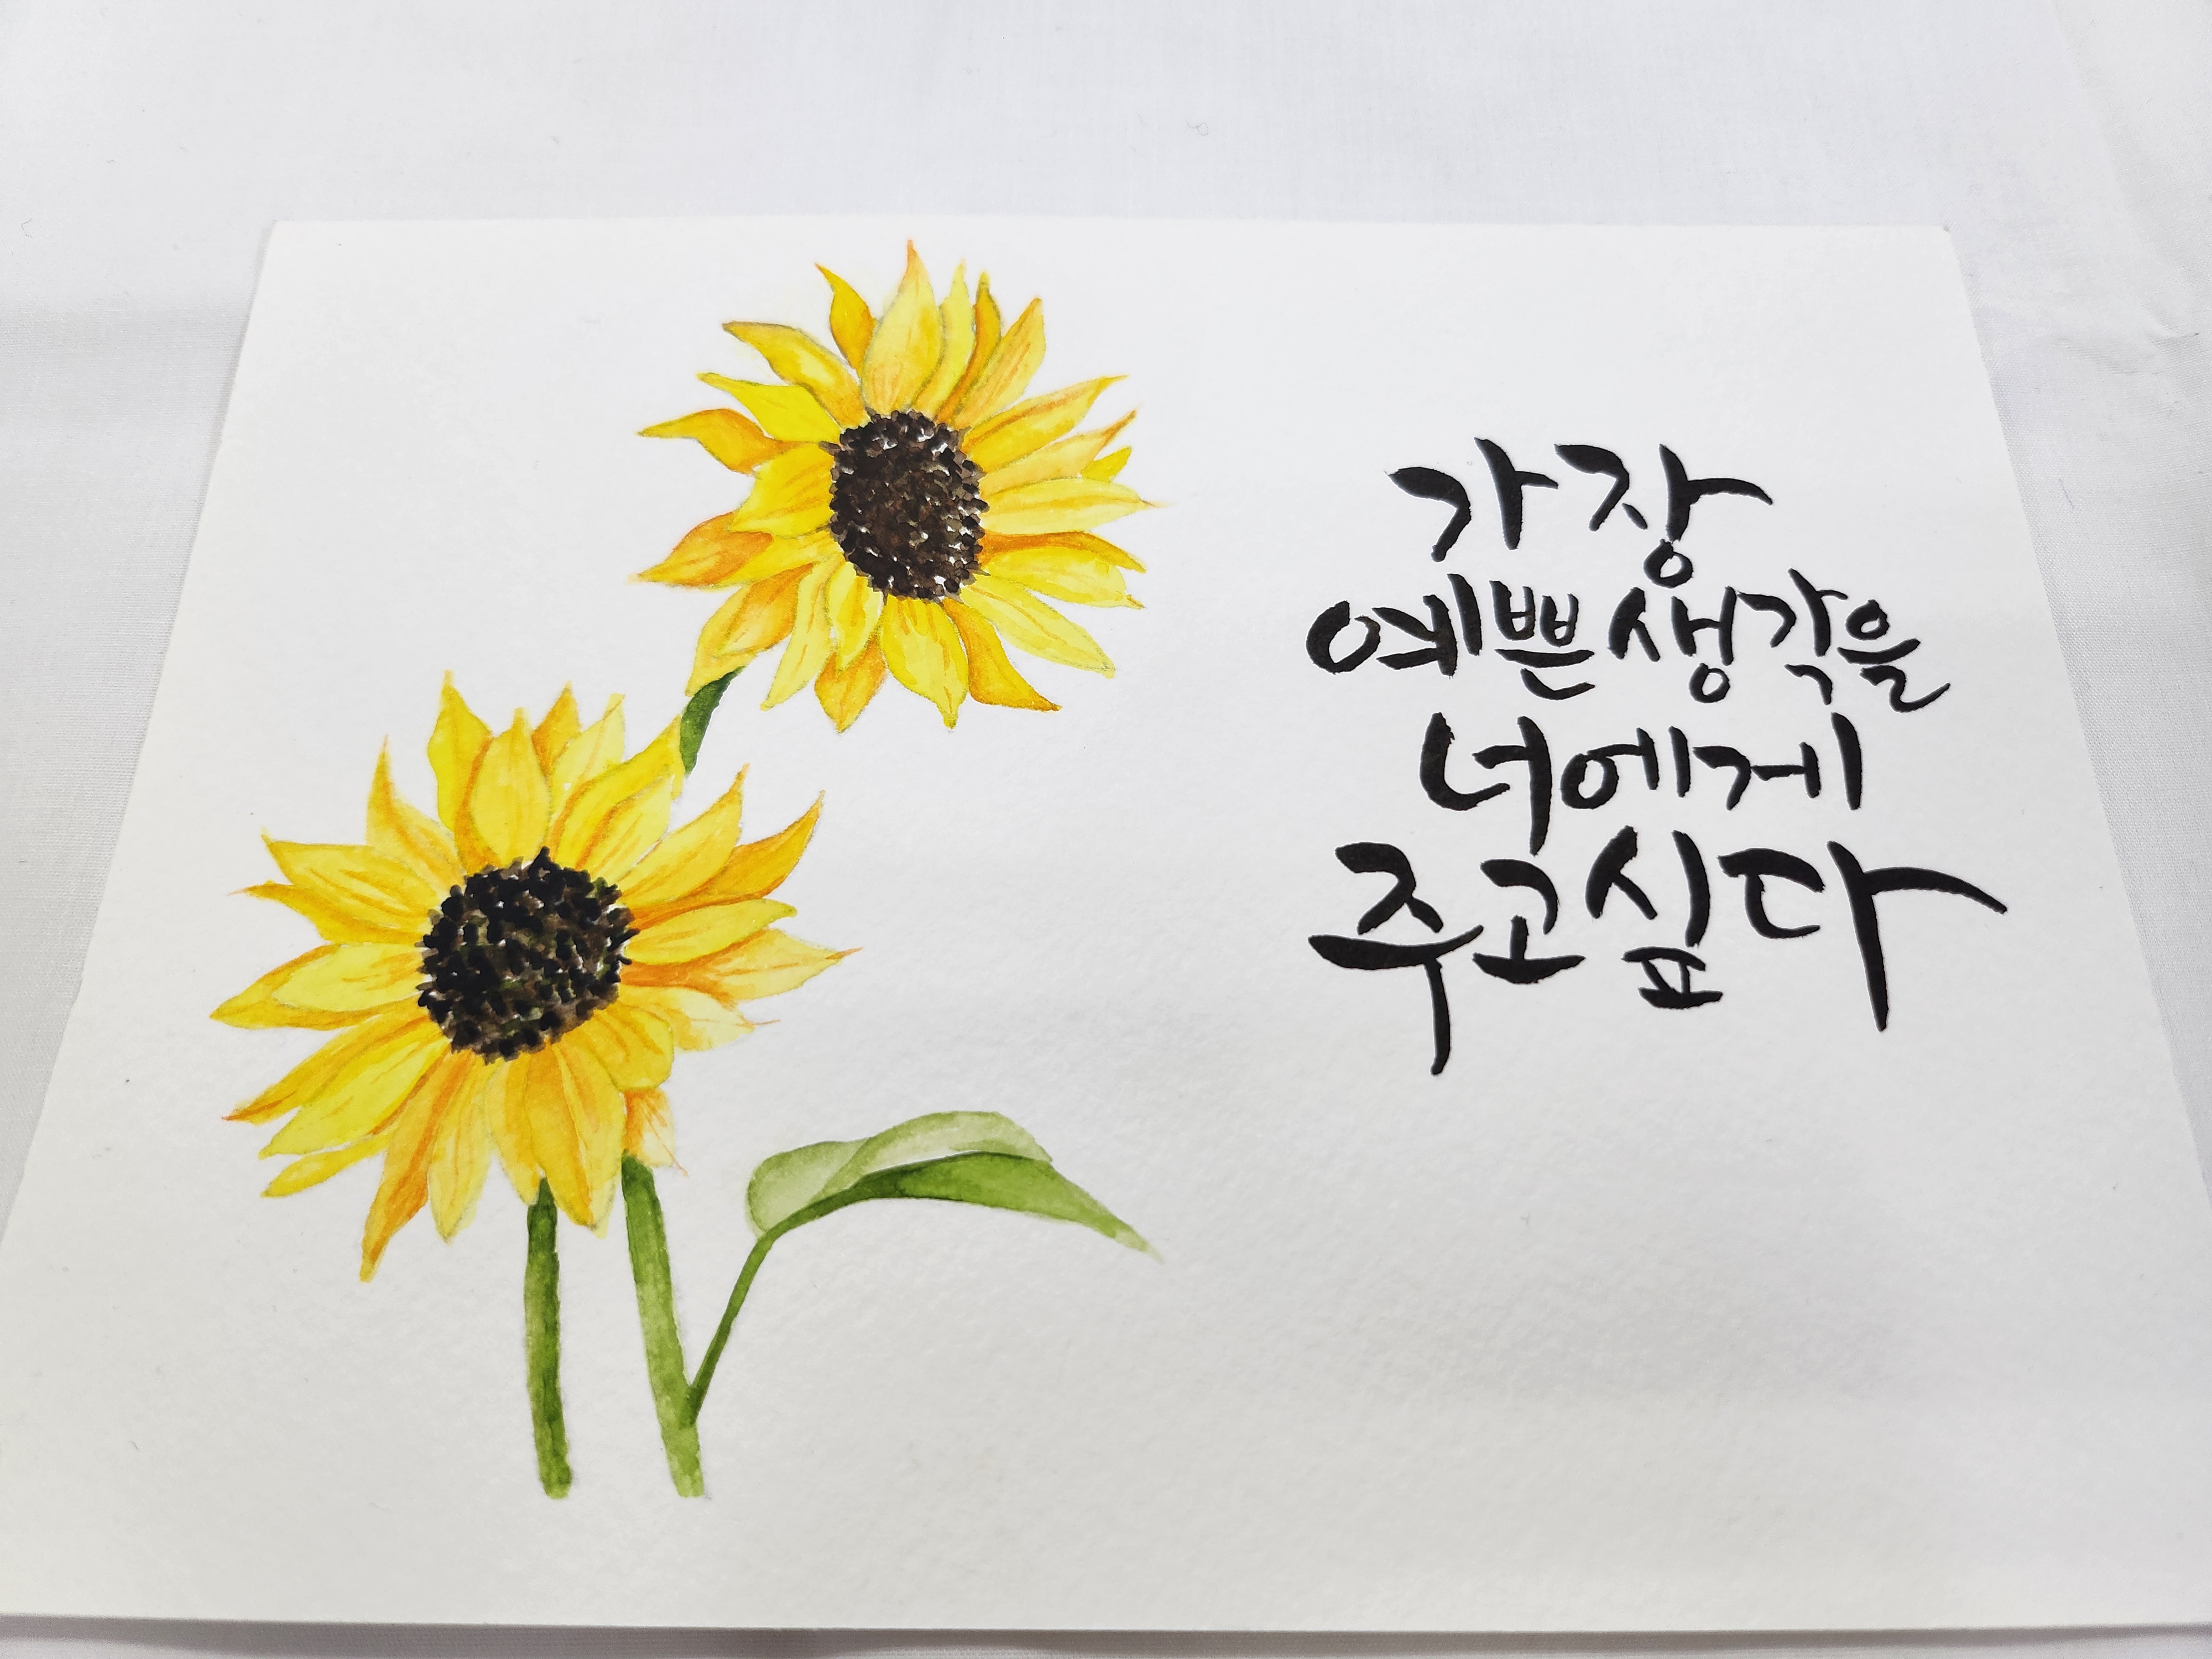 가장
예쁜생각을
너에게
주고싶다